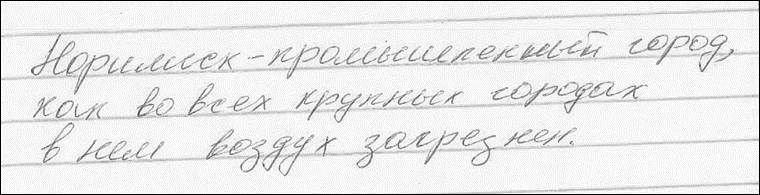 Норилиск-промышленный город,
как во всех крупных городах
в нем воздух загрезнен.